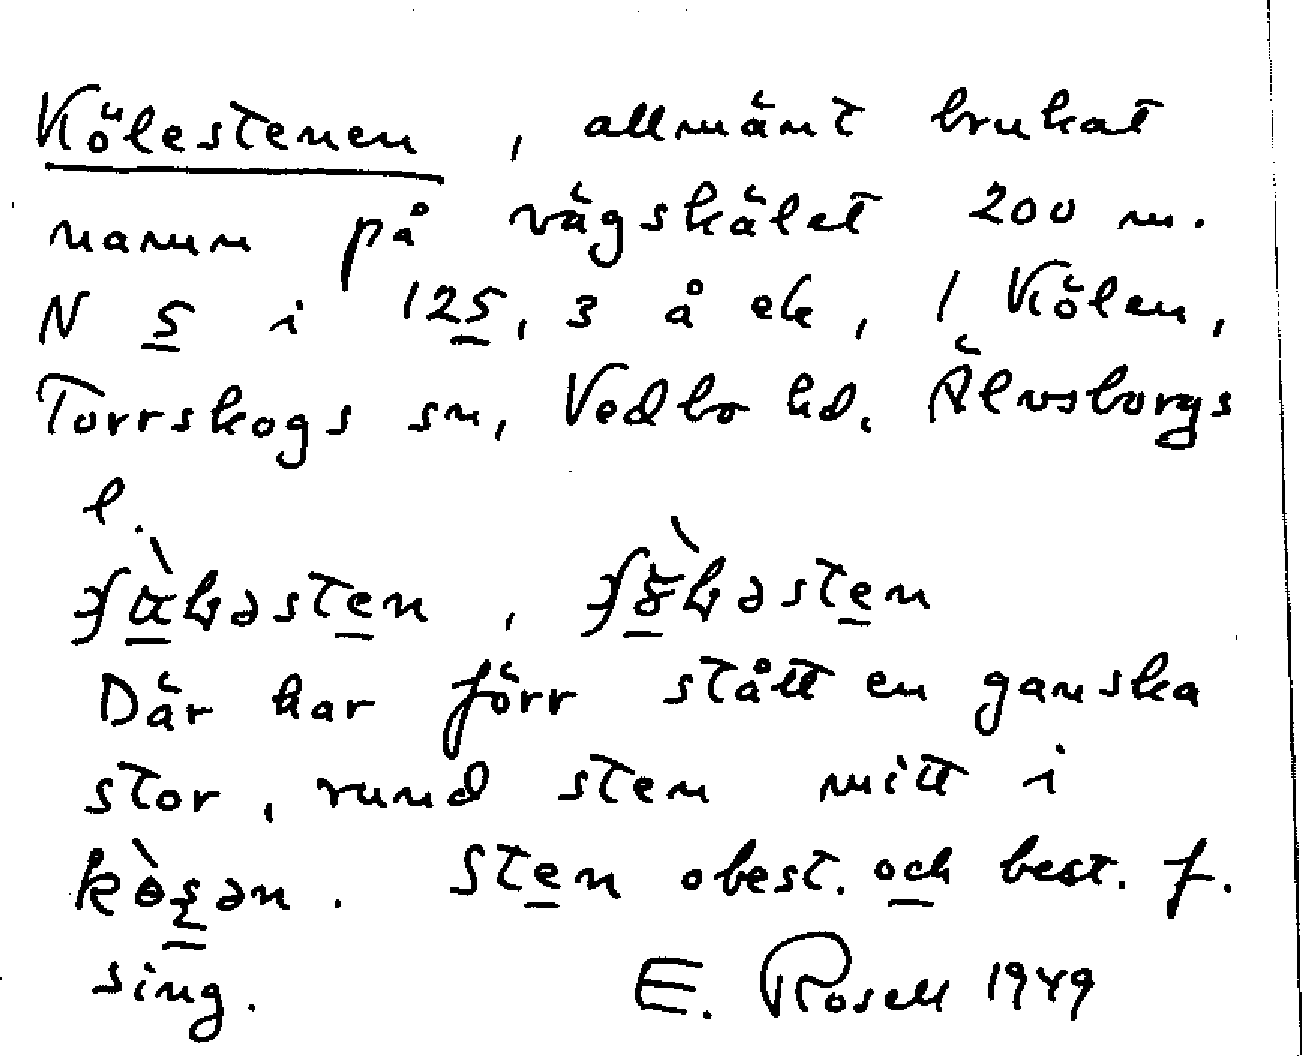 Kölestenen, allmänt brukat
namn på vägskälet 200 m.
N 5 i 125, 3 å ek, 1 Kölen,
Torrskogs sn, Vedbo hd. Älvsborgs
l.
Där har förr stått en ganska
stor, rund sten mitt i
Sten obest. och best. f.
sing. E. Rosell 1949